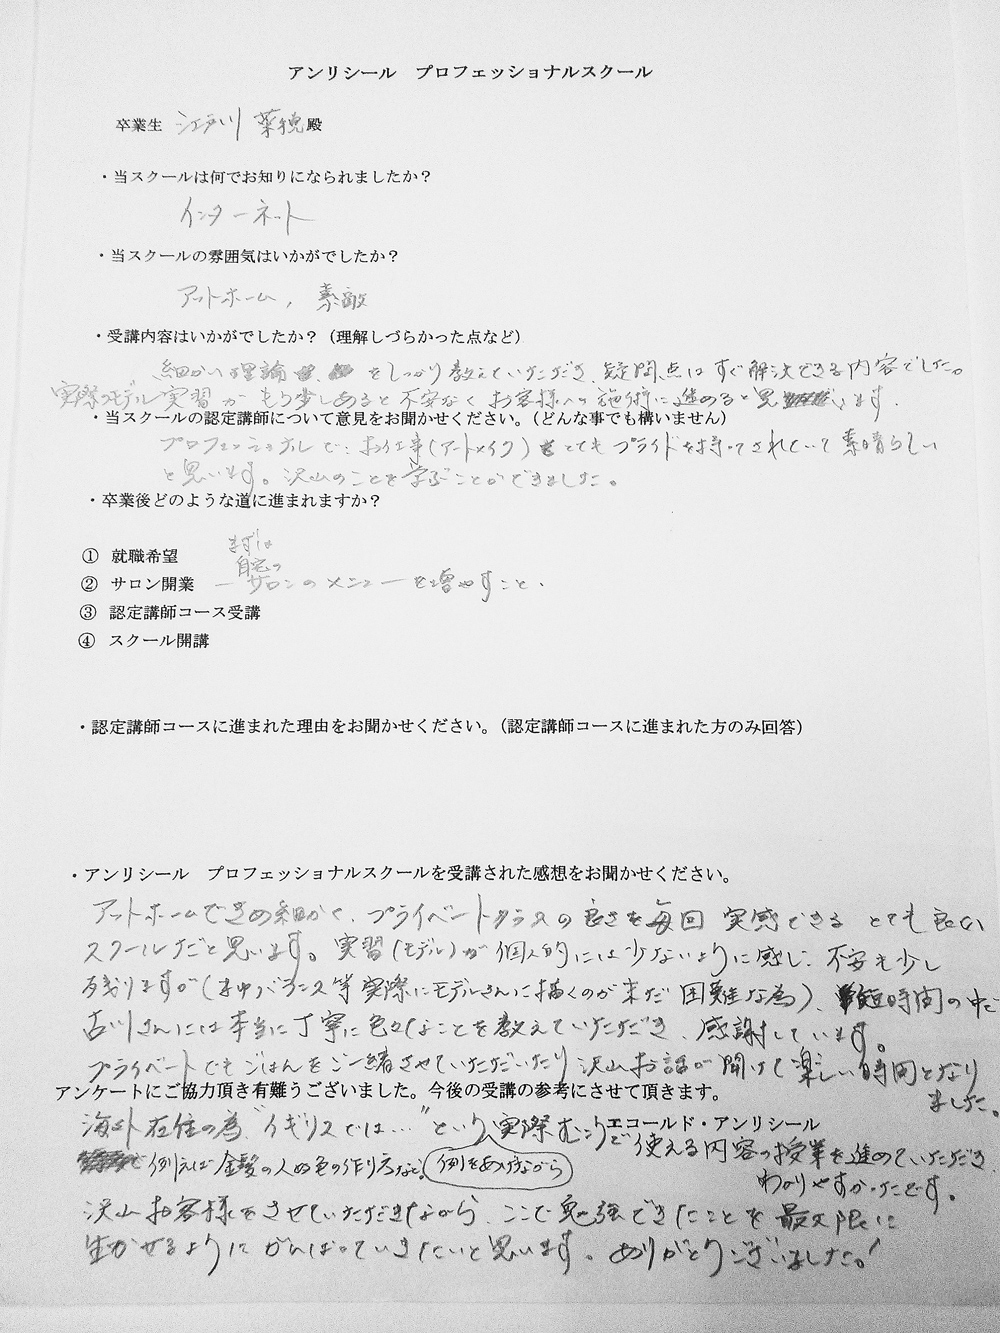 アンリシール　プロフェッショナルスクール
卒業生 江戸川 殿
・当スクールは何でお知りになられましたか？
インターネット
・当スクールの雰囲気はいかがでしたか？
アットホーム, 素敵
・受講内容はいかがでしたか？（理解しづらかった点など）
細かい理論 をしっかり教えていただき、疑問点はすぐ解決できる内容でした。
実際のモデル実習がもう少しあると不安なくお客様への施術に進めると思います
・当スクールの認定講師について意見をお聞かせください。（どんな事でも構いません）
プロフェッショナルで、お仕事（アートメイク）をとてもプライドを持ってされていて素晴らしい
と思います。沢山のことを学ぶことができました。
・卒業後どのような道に進まれますか？
① 就職希望
まずは
自宅の
② サロン開業 ― サロンのメニューを増やすこと、
③ 認定講師コース受講
④ スクール開講
・認定講師コースに進まれた理由をお聞かせください。（認定講師コースに進まれた方のみ回答）
・アンリシール　プロフェッショナルスクールを受講された感想をお聞かせください。
アットホームできめ細かく、プライベートクラスの良さを毎回 実感できる とても良い
スクールだと思います。実習（モデル）が個人的には少ないように感じ、不安も少し
残りますが（ バランス等実際にモデルさんに描くのが未だ困難な為）、短時間の中で
古川さんには本当に丁寧に色々なことを教えていただき、感謝しています。
プライベートでもごはんをご一緒させていただいたり沢山お話が聞けて楽しい時間となり
ました。
アンケートにご協力頂き有難うございました。今後の受講の参考にさせて頂きます。
エコールド・アンリシール
海外在住の為、"イギリスでは…"という、実際むこうで使える内容の授業を進めていただき、
例えば金髪の人の色の作り方など。（例をあげながら） わかりやすかったです。
沢山お客様をさせていただきながら、ここで勉強できたことを最大限に
生かせるようにがんばっていきたいと思います。ありがとうございました。！